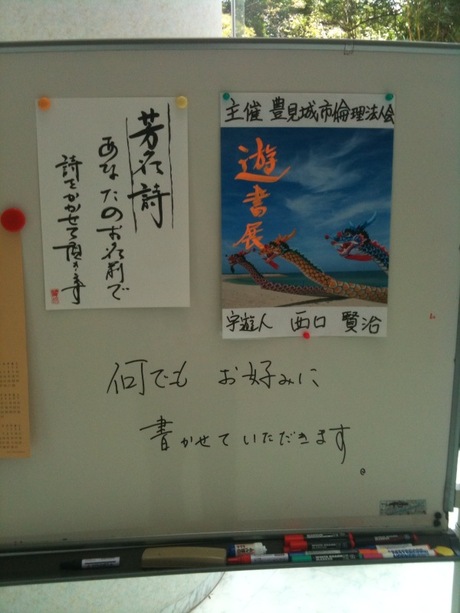 芳名詩
あなたのお名前で
詩をかかせて頂きます
主催 豊見城市倫理法人会
遊書展
字遊人 西口 賢治
何でも お好みに
書かせていただきます